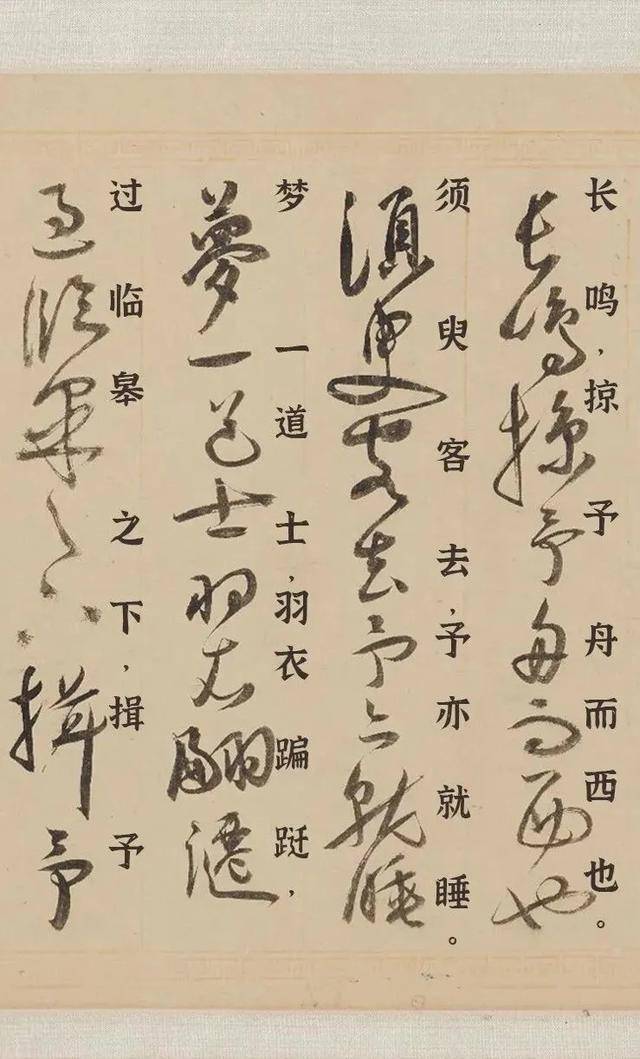 长鸣，掠予舟而西也。
長鳴掠予舟而西也
须臾客去，予亦就睡。
須臾客去予亦就睡
梦一道士，羽衣蹁跹，
夢一道士羽衣翩遷
过临皋之下，揖予
過臨皋之下揖予